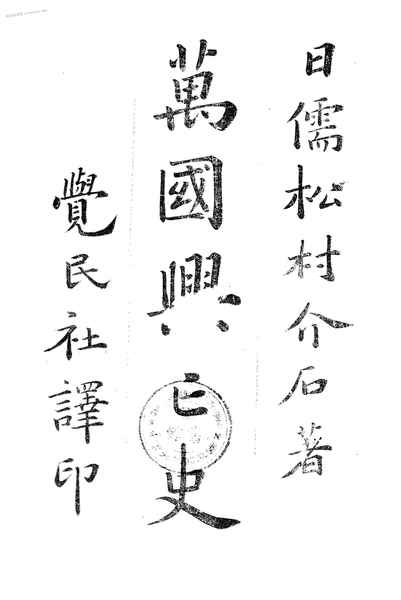 日儒松村介石著
萬國興亡史
覺民社譯印